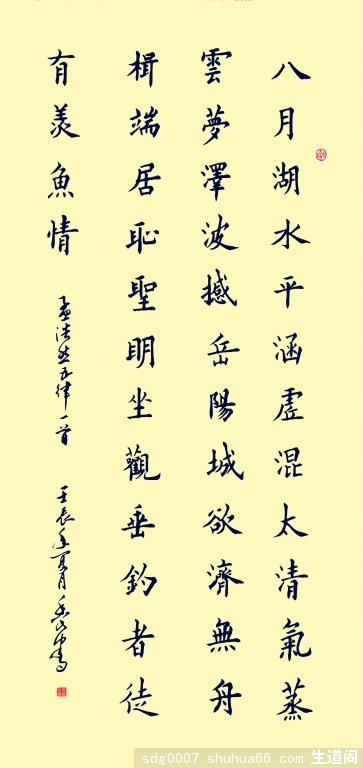 八月湖水平涵虚混太清氣蒸
雲夢澤波撼岳陽城欲濟無舟
楫端居恥聖明坐觀垂釣者徒
有羨魚情
孟浩然五律一首
壬辰年夏月
sdg0007.shuhua66.com 生道阁